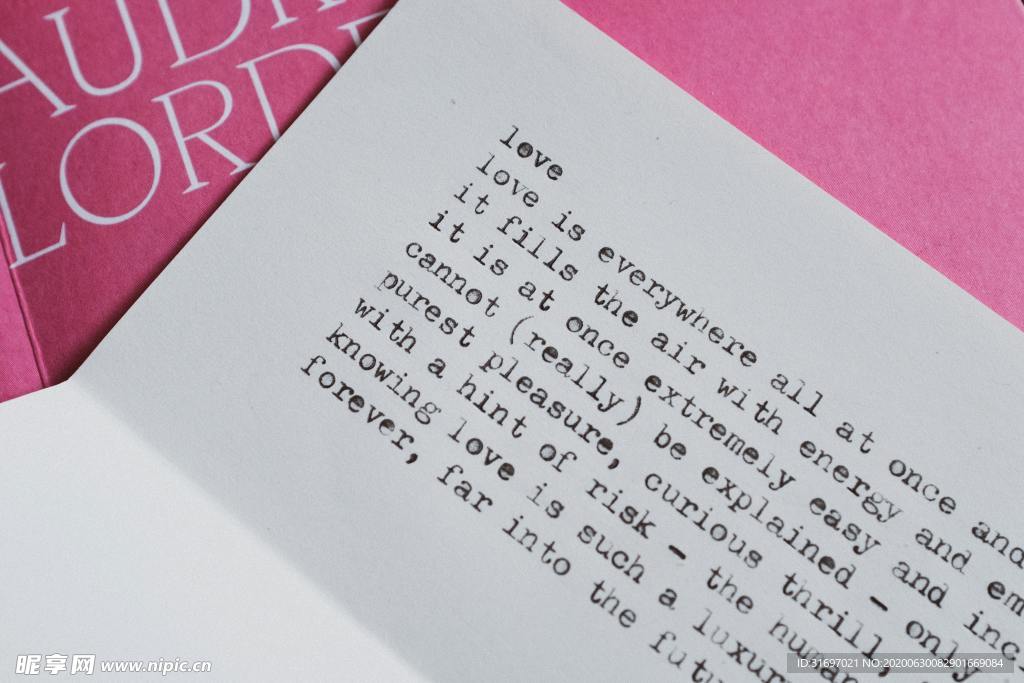 AUDR
LORD
love
love is everywhere all at once and
it fills the air with energy and em
it is at once extremely easy and inc
cannot (really) be explained – only
purest pleasure, curious thrill,
with a hint of risk – the human
knowing love is such a luxur
forever, far into the futu
昵享网 www.nipic.cn
ID:31697021 NO:20200630082901669084